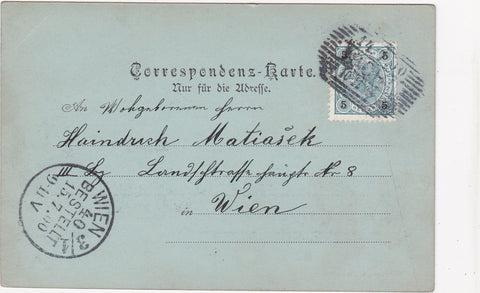 Correspondenz-Karte.
Nur für die Adresse.
An Wohgeborenen Herrn
Haindrich Matiašek
III Landschtrasse haupts Nr 8
in Wien
5 5
5 5
WIEN 3/1
40
BESTELLT
15.7.00
9-11.V